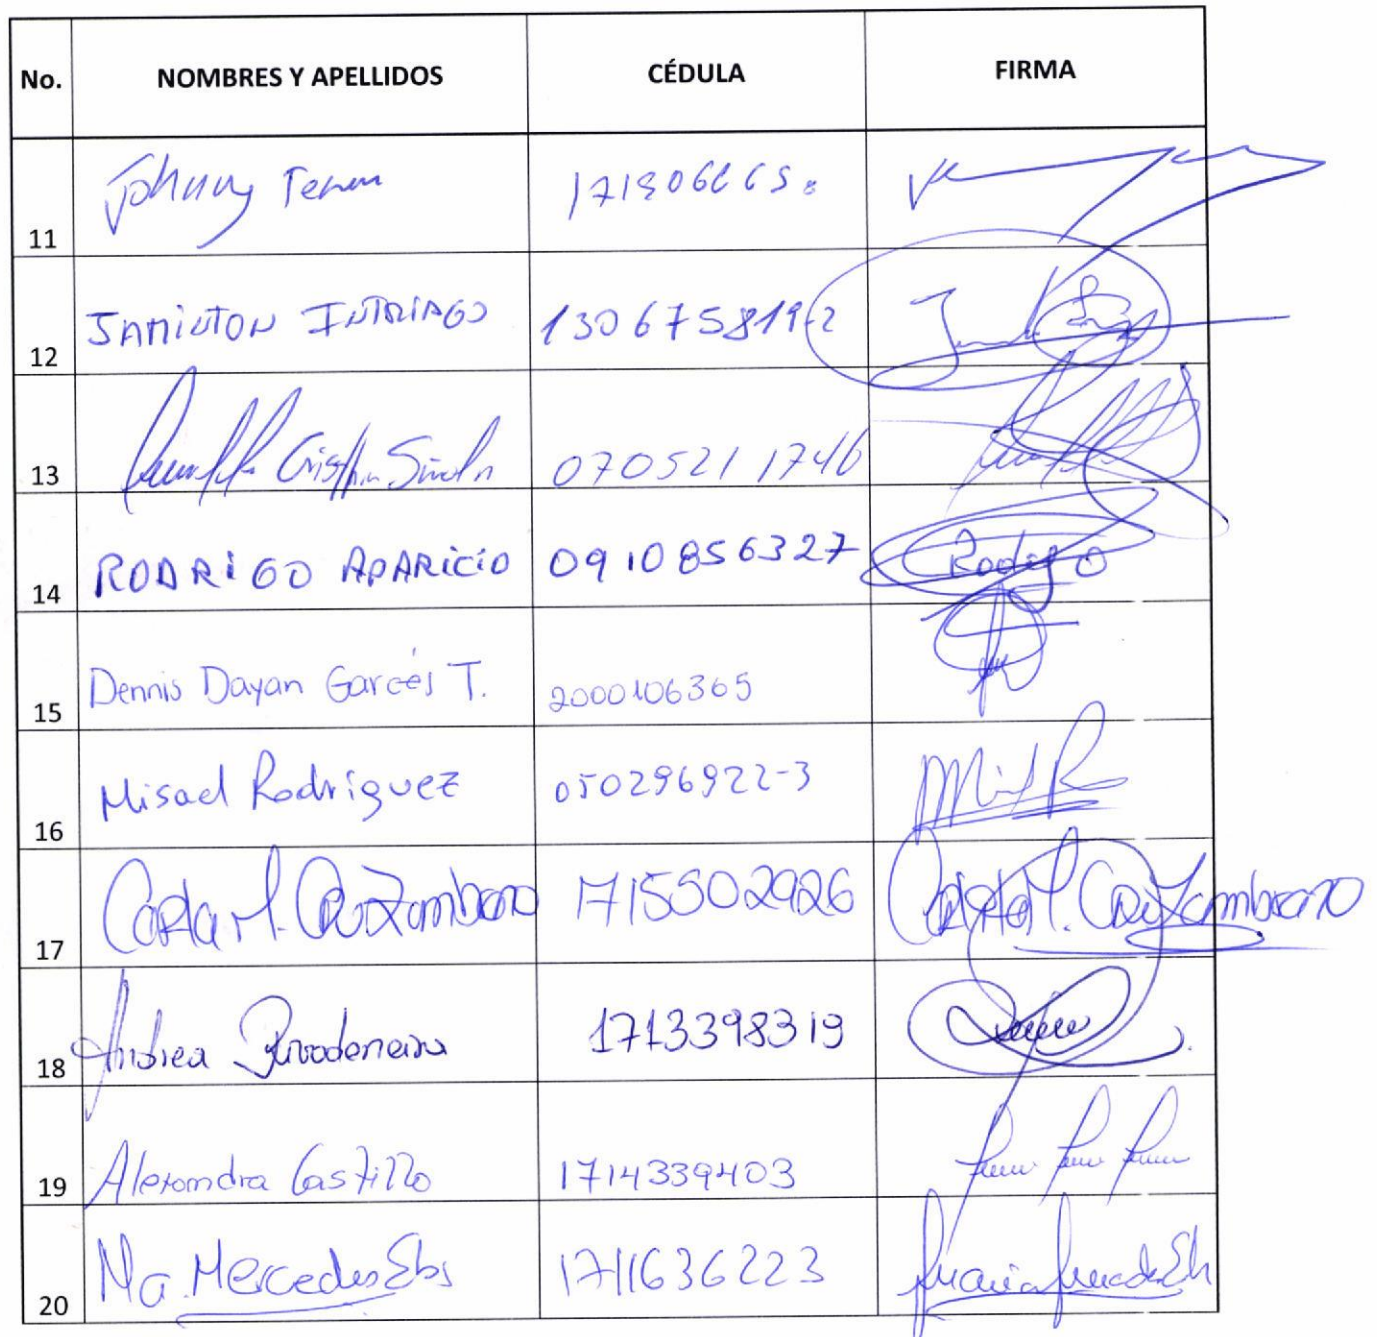 No. NOMBRES Y APELLIDOS CÉDULA FIRMA
11 Johnny
12 JAMINTON INTRIAGO 130675819-2
13 Cristhin 0705211746
14 RODRIGO APARICIO 0910856327 Rodrigo
15 Dennis Dayan Garcés T. 2000106365
16 Misael Rodríguez 050296922-3
17 Carla M. Cruz Zambrano 1715502926 Carla M. Cruz Zambrano
18 Andrea Rivadeneira 1713398319
19 Alexandra Castillo 1714339403
20 Ma. Mercedes 1711636223